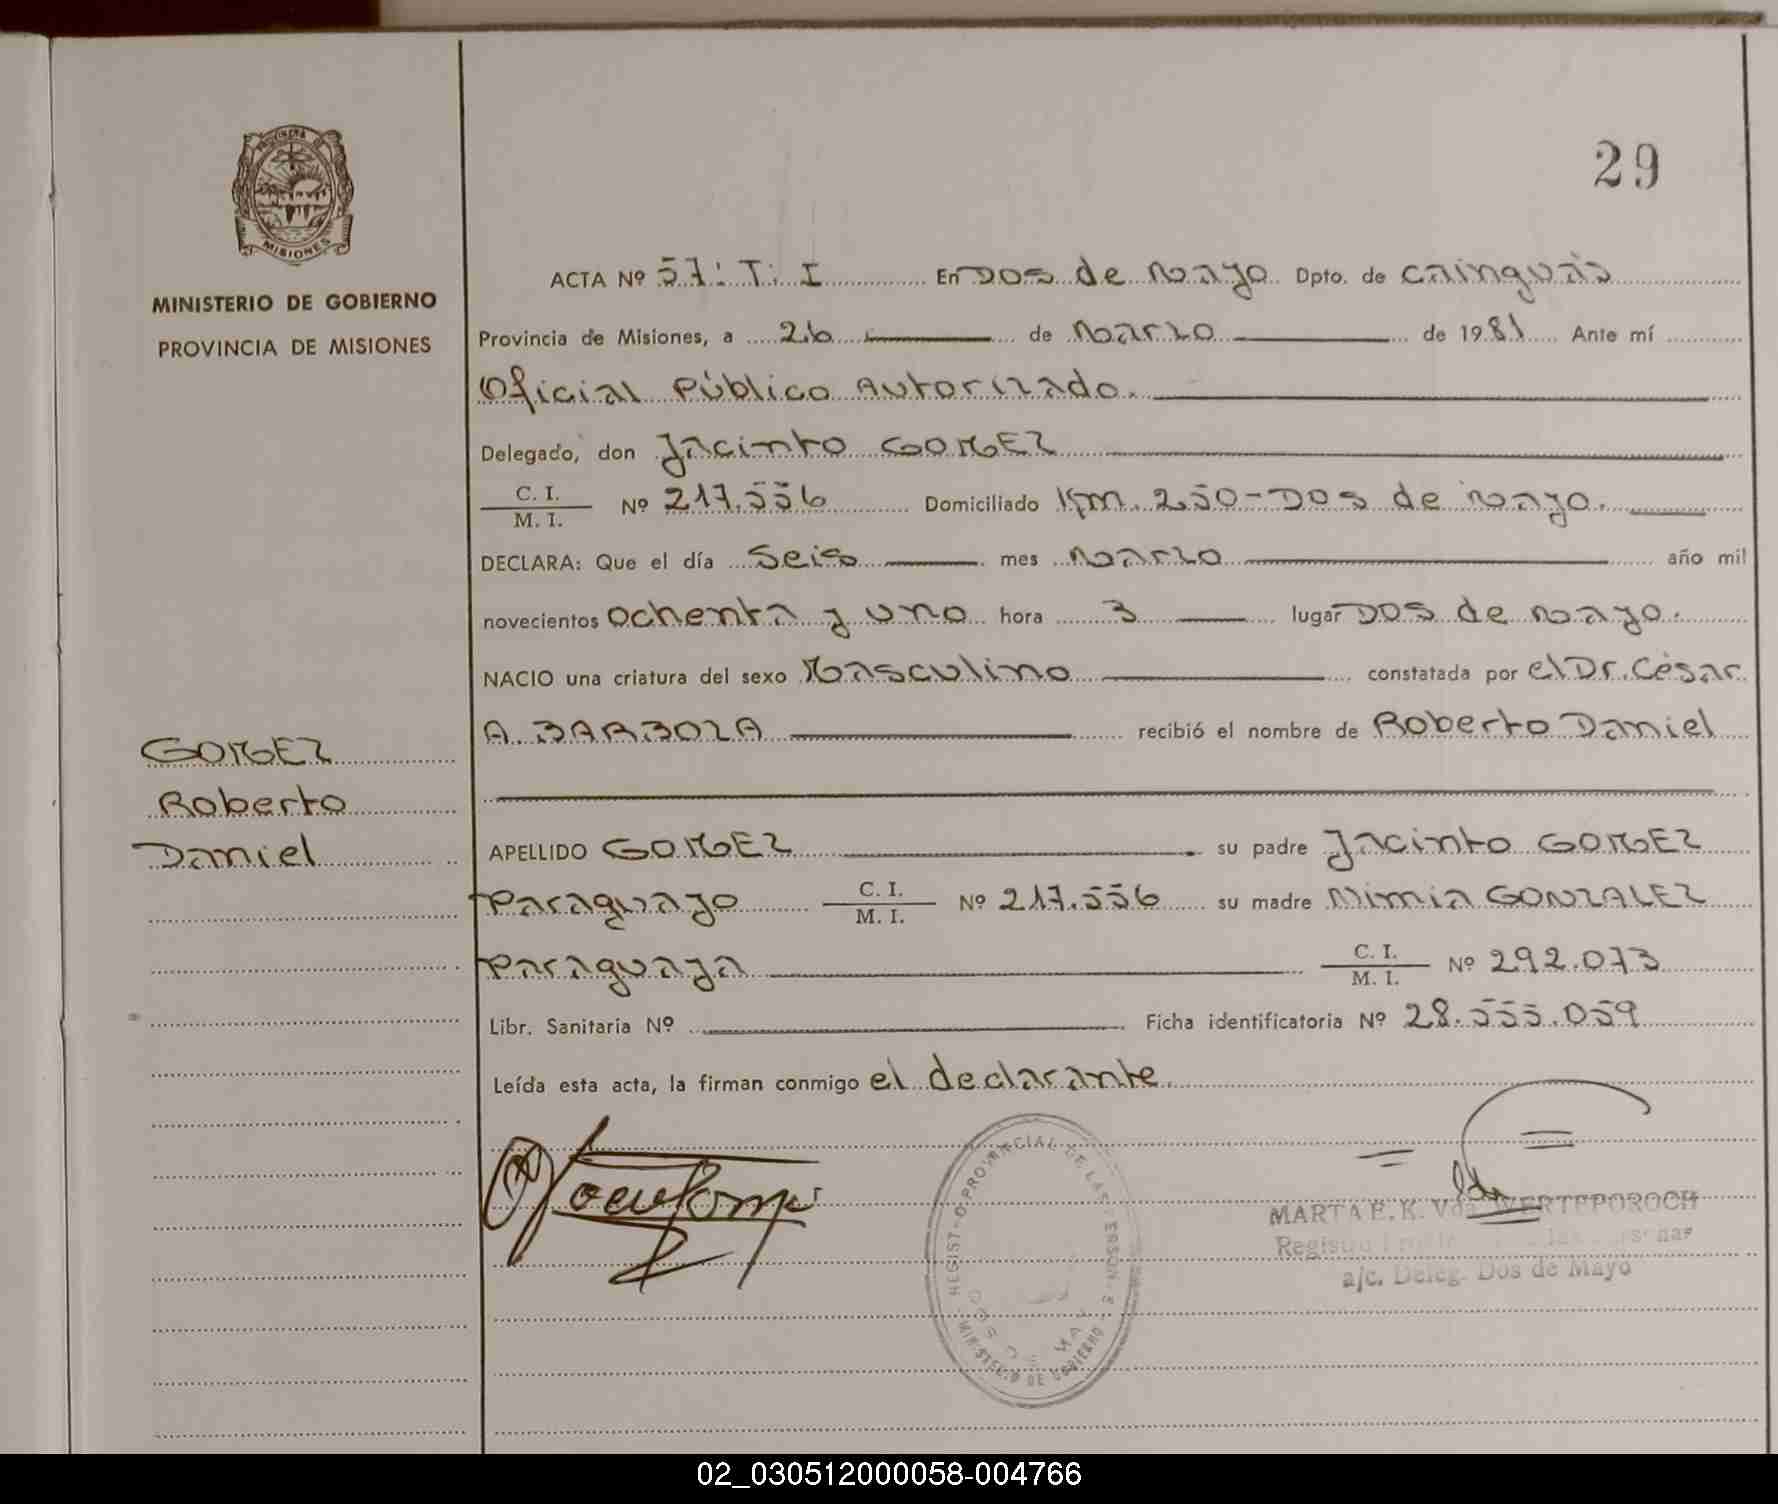 29
PROVINCIA DE
MISIONES
MINISTERIO DE GOBIERNO
PROVINCIA DE MISIONES
ACTA Nº 57: T: I En DOS de Mayo Dpto. de Cainguás
Provincia de Misiones, a 26 de Marzo de 1981 Ante mí
Oficial Público Autorizado.
Delegado, don Jacinto GOMEZ
C. I.
M. I. Nº 217.556 Domiciliado Km. 250-Dos de Mayo.
DECLARA: Que el día Seis mes Marzo año mil
novecientos Ochenta y uno hora 3 lugar DOS de Mayo.
NACIO una criatura del sexo Masculino constatada por el Dr. César
A. BARBOZA recibió el nombre de Roberto Daniel
GOMEZ
Roberto
Daniel
APELLIDO GOMEZ su padre Jacinto GOMEZ
Paraguayo C. I.
M. I. Nº 217.556 su madre Mimia GONZALEZ
Paraguaya C. I.
M. I. Nº 292.073
Libr. Sanitaria Nº Ficha identificatoria Nº 28.555.059
Leída esta acta, la firman conmigo el declarante.
REGISTRO PROVINCIAL DE LAS PERSONAS
DOS DE MAYO
MINISTERIO DE GOBIERNO
MARTA E. K. Vda. WERTEPOROCH
a/c. Deleg. Dos de Mayo
02_030512000058-004766